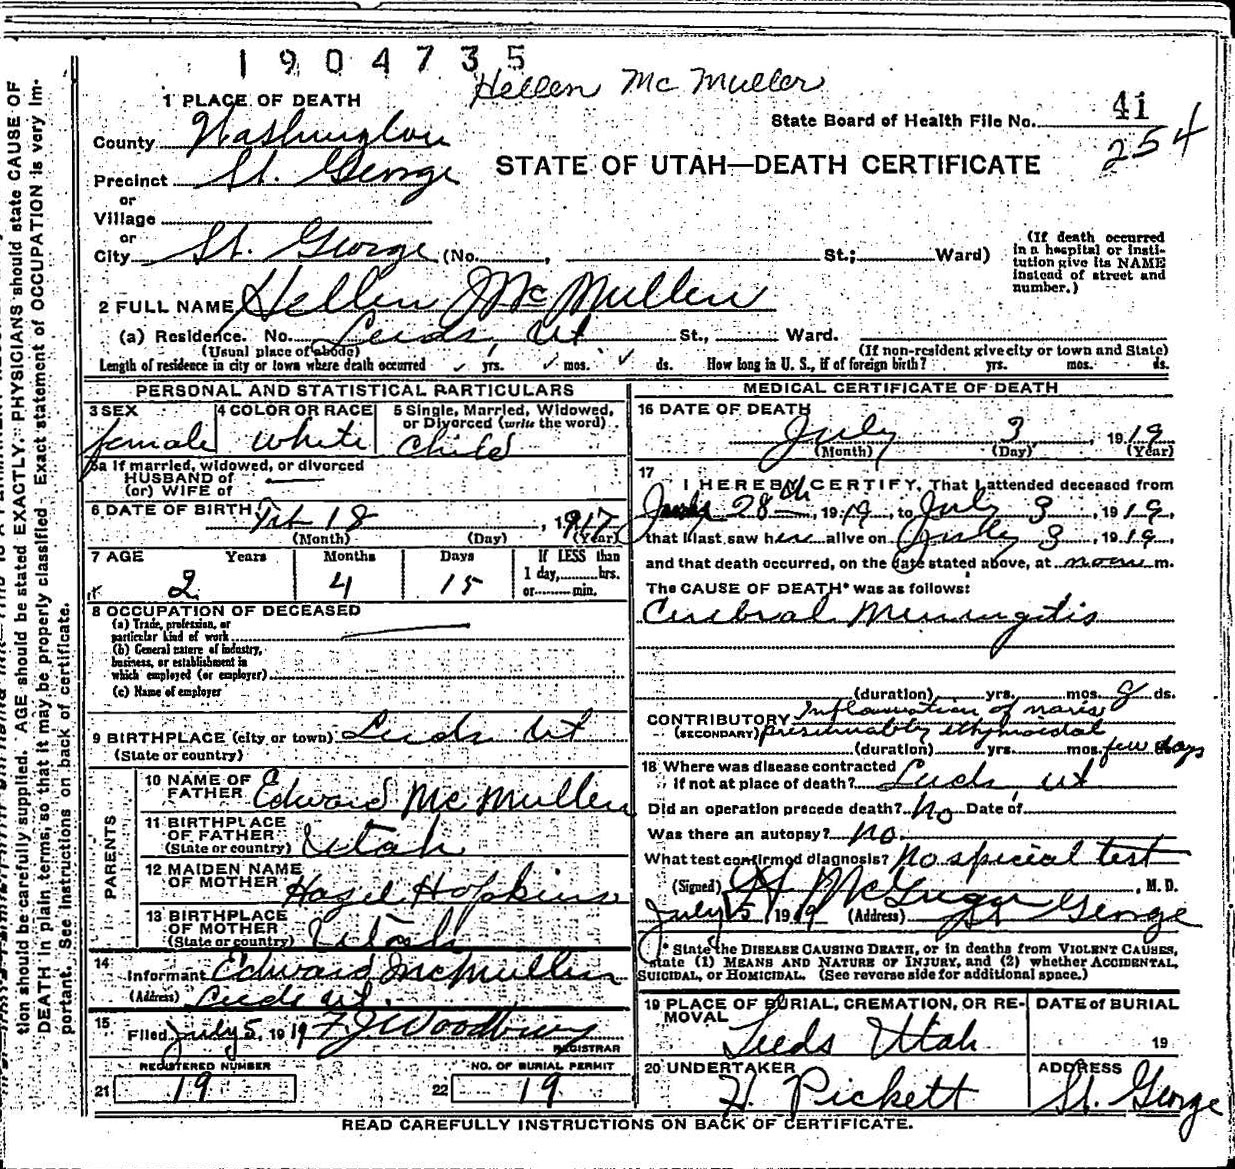 1904735
Hellen Mc Mullen
1 PLACE OF DEATH
State Board of Health File No. 41
254
County Washington
STATE OF UTAH—DEATH CERTIFICATE
Precinct St. George
or
Village
or
City St. George (No. , St.; Ward)
(If death occurred in a hospital or institution give its NAME instead of street and number.)
2 FULL NAME Hellen Mc Mullen
(a) Residence. No. Leeds, Ut St., Ward.
(Usual place of abode) (If non-resident give city or town and State)
Length of residence in city or town where death occurred yrs. mos. ds. How long in U. S., if of foreign birth? yrs. mos. ds.
PERSONAL AND STATISTICAL PARTICULARS
3 SEX female
4 COLOR OR RACE white
5 Single, Married, Widowed, or Divorced (write the word) Child
5a If married, widowed, or divorced
HUSBAND of
(or) WIFE of
6 DATE OF BIRTH Feb 18, 1917
(Month) (Day) (Year)
7 AGE Years Months Days If LESS than
2 4 15 1 day, hrs.
or min.
8 OCCUPATION OF DECEASED
(a) Trade, profession, or
particular kind of work
(b) General nature of industry,
business, or establishment in
which employed (or employer)
(c) Name of employer
9 BIRTHPLACE (city or town) Leeds Ut
(State or country)
PARENTS
10 NAME OF FATHER Edward Mc Mullen
11 BIRTHPLACE OF FATHER (State or country) Utah
12 MAIDEN NAME OF MOTHER Hazel Hopkins
13 BIRTHPLACE OF MOTHER (State or country) Utah
14 Informant Edward McMullen
(Address) Leeds Ut.
15 Filed July 5, 1919 F. J. Woodbury
REGISTRAR
REGISTERED NUMBER NO. OF BURIAL PERMIT
21 19 22 19
MEDICAL CERTIFICATE OF DEATH
16 DATE OF DEATH
July 3, 1919
(Month) (Day) (Year)
17
I HEREBY CERTIFY, That I attended deceased from
28th, 1919, to July 3, 1919,
that I last saw her alive on July 3, 1919,
and that death occurred, on the date stated above, at noon m.
The CAUSE OF DEATH* was as follows:
Cerebral Meningitis
(duration) yrs. mos. 8 ds.
CONTRIBUTORY Inflammation of naris
(SECONDARY) presumably ethmoidal
(duration) yrs. mos. few days
18 Where was disease contracted
if not at place of death? Leeds, Ut
Did an operation precede death? No Date of
Was there an autopsy? No.
What test confirmed diagnosis? No special test
(Signed) McGregor, M. D.
July 5, 1919 (Address) St George
* State the DISEASE CAUSING DEATH, or in deaths from VIOLENT CAUSES,
state (1) MEANS AND NATURE OF INJURY, and (2) whether ACCIDENTAL,
SUICIDAL, or HOMICIDAL. (See reverse side for additional space.)
19 PLACE OF BURIAL, CREMATION, OR REMOVAL DATE of BURIAL
Leeds Utah 19
20 UNDERTAKER ADDRESS
H. Pickett St. George
READ CAREFULLY INSTRUCTIONS ON BACK OF CERTIFICATE.
tion should be carefully supplied. AGE should be stated EXACTLY. PHYSICIANS should state CAUSE OF
DEATH in plain terms, so that it may be properly classified. Exact statement of OCCUPATION is very im-
portant. See instructions on back of certificate.